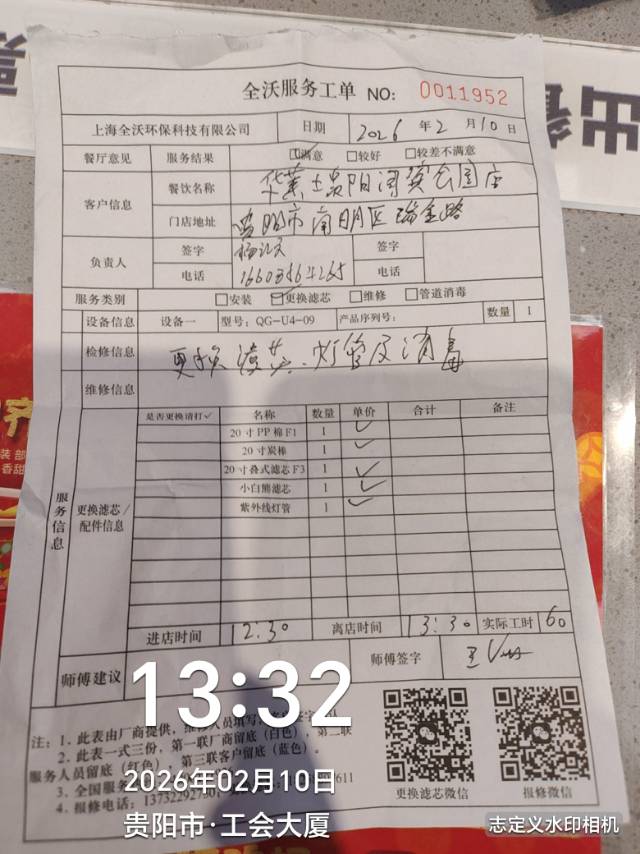 全沃服务工单 NO: 0011952
上海全沃环保科技有限公司 日期 2026 年 2 月 10 日
餐厅意见 服务结果 ☑满意 □较好 □较差不满意
客户信息 餐饮名称
门店地址 贵阳市南明区瑞金路
负责人 签字 签字
电话 电话
服务类别 □安装 ☑更换滤芯 □维修 □管道消毒
设备信息 设备一 型号: QG-U4-09 产品序列号: 数量 1
检修信息 更换滤芯、灯管及消毒
维修信息
服务信息 更换滤芯/配件信息
是否更换请打✓ 名称 数量 单价 合计 备注
20寸PP棉F1 1 ✓
20寸炭棒 1 ✓
20寸叠式滤芯F3 1 ✓
小白熊滤芯 1 ✓
紫外线灯管 1 ✓
进店时间 12:30 离店时间 13:30 实际工时 60
师傅建议 师傅签字
13:32
注: 1、此表由厂商提供,
2、此表一式三份, 第一联厂商留底(白色), 第二联
服务人员留底(红色), 第三联客户留底(蓝色)。
3、全国服务
4、报修电话:
更换滤芯微信 报修微信
2026年02月10日
贵阳市·工会大厦
志定义水印相机